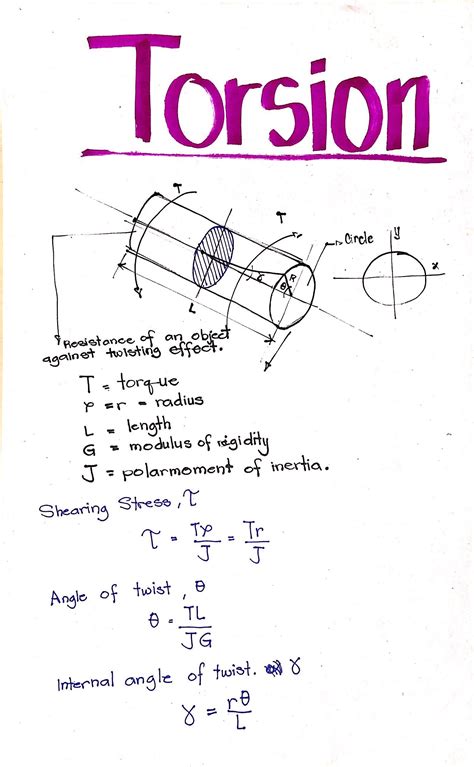 Torsion
T
T
Circle
y
x
R
θ
L
Resistance of an object
against twisting effect.
T = torque
ρ = r = radius
L = length
G = modulus of rigidity
J = polarmoment of inertia.
Shearing Stress, τ
τ = Tρ/J = Tr/J
Angle of twist, θ
θ = TL/JG
Internal angle of twist. γ
γ = rθ/L